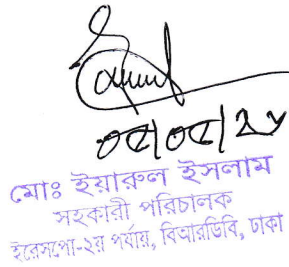 মোঃ ইয়ারুল ইসলাম
সহকারী পরিচালক
ইরেসপো-২য় পর্যায়, বিআরডিবি, ঢাকা